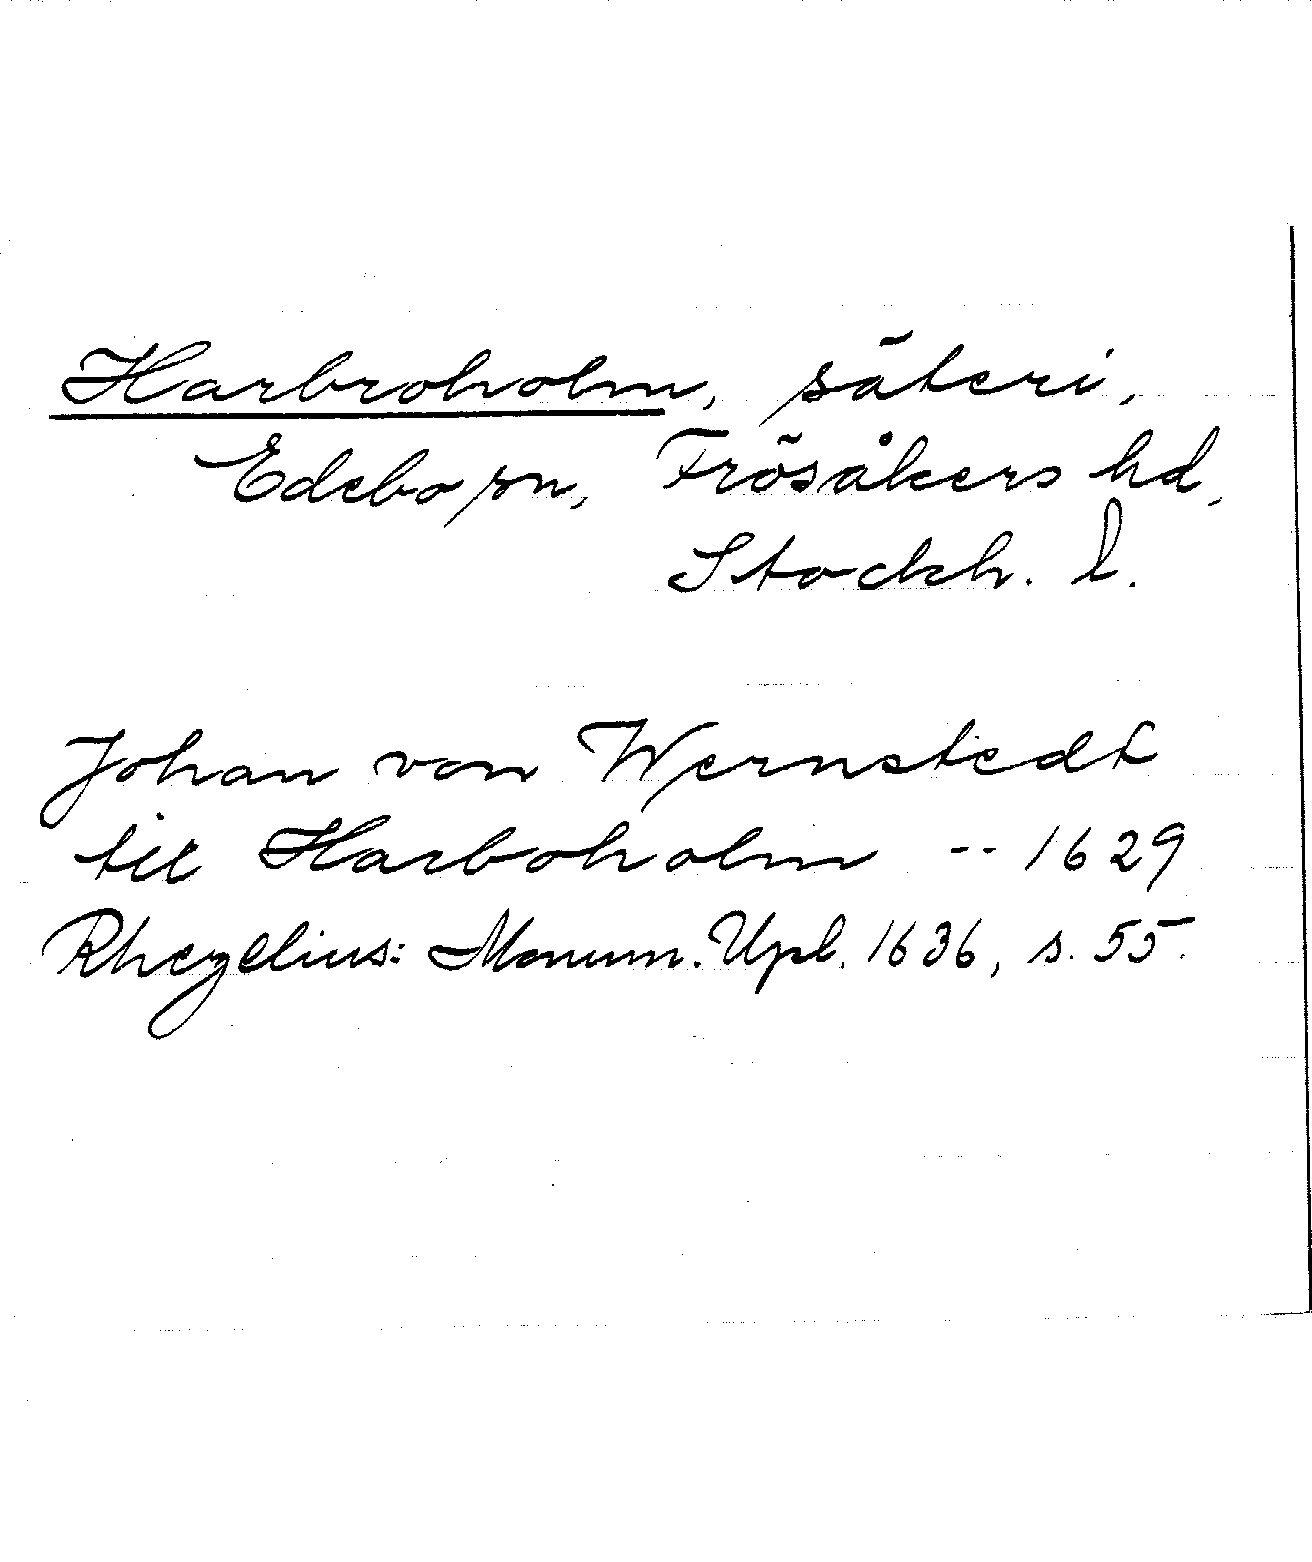 Harbroholm, säteri,
Edebo sn, Frösåkers hd,
Stockh. l.
Johan von Wernstedt
till Harboholm -- 1629
Rhezelius: Monum. Upl. 1636, s. 55.